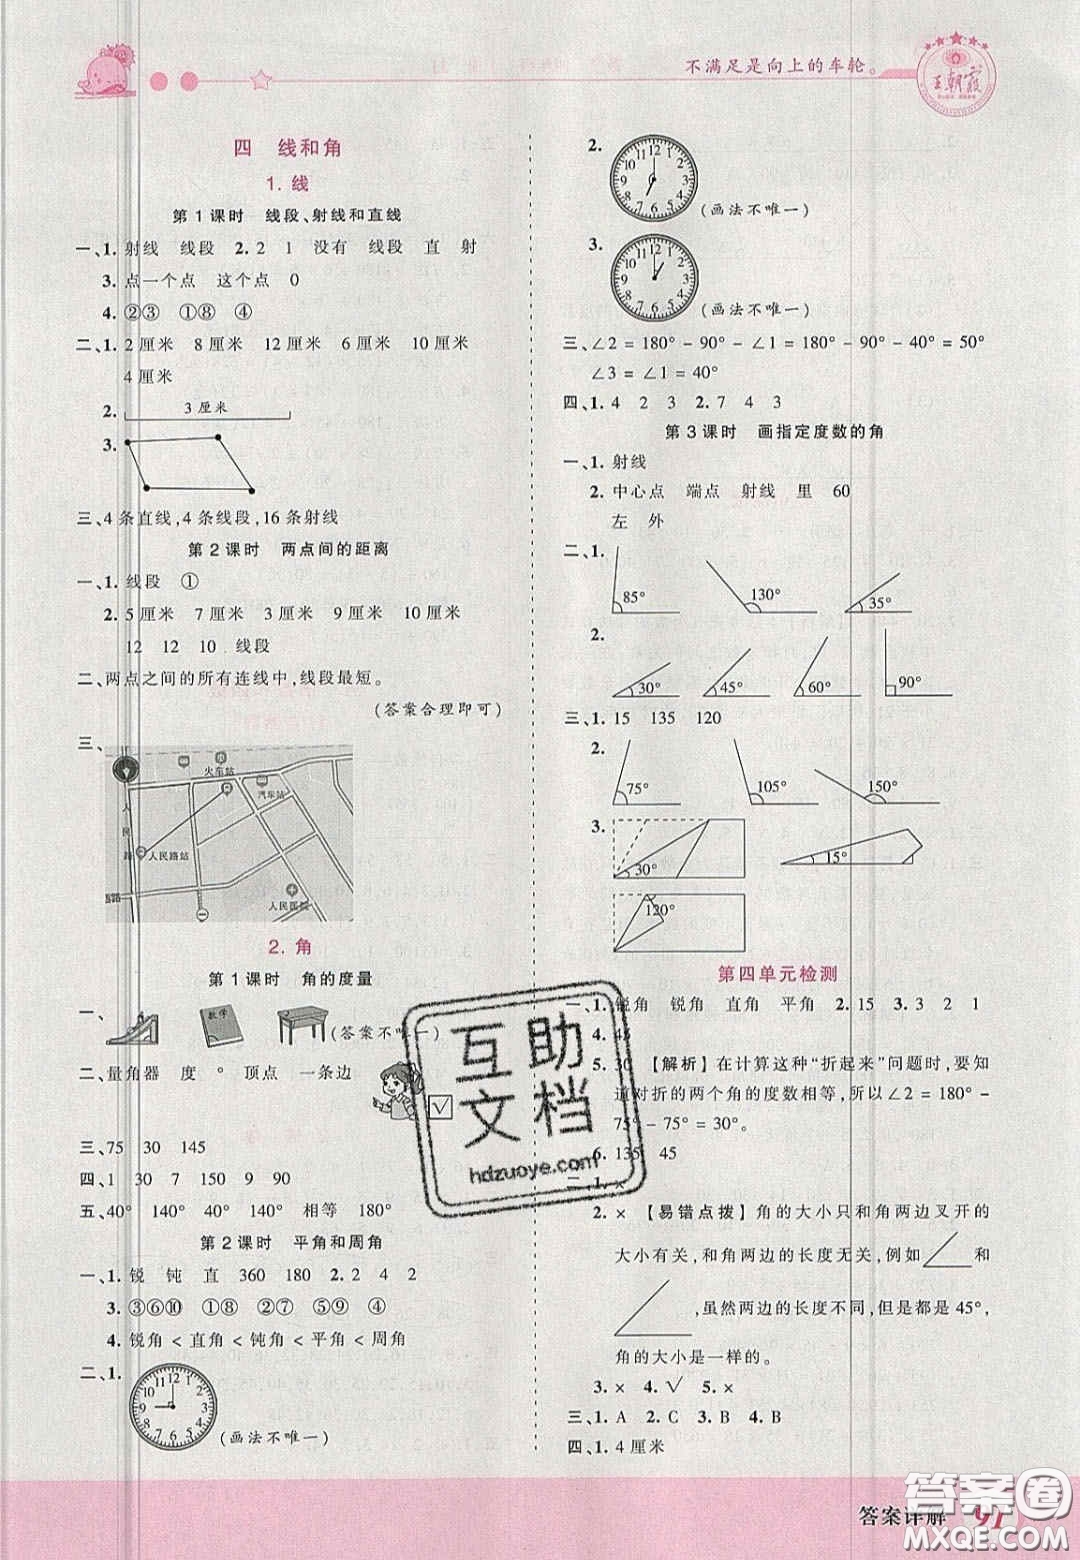 不满足是向上的车轮。
王朝霞
四 线和角
1. 线
第1课时 线段、射线和直线
一、1. 射线 线段 2. 2 1 没有 线段 直 射
3. 点一个点 这个点 0
4. ②③ ①⑧ ④
二、1. 2厘米 8厘米 12厘米 6厘米 10厘米
4厘米
2. 3厘米
3.
三、4条直线,4条线段,16条射线
第2课时 两点间的距离
一、1. 线段 ①
2. 5厘米 7厘米 3厘米 9厘米 10厘米
12 12 10 线段
二、两点之间的所有连线中,线段最短。
(答案合理即可)
三、
火车站
汽车站
人民路
人民路站
人民医院
2. 角
第1课时 角的度量
一、 数学 (答案不唯一)
二、量角器 度 ° 顶点 一条边
√
三、75 30 145
四、1 30 7 150 9 90
五、40° 140° 40° 140° 相等 180°
第2课时 平角和周角
一、1. 锐 钝 直 360 180 2. 2 4 2
3. ③⑥⑩ ①⑧ ②⑦ ⑤⑨ ④
4. 锐角<直角<钝角<平角<周角
二、1. (画法不唯一)
2. (画法不唯一)
3. (画法不唯一)
三、∠2=180°-90°-∠1=180°-90°-40°=50°
∠3=∠1=40°
四、1. 4 2 3 2. 7 4 3
第3课时 画指定度数的角
一、1. 射线
2. 中心点 端点 射线 里 60
左 外
二、1. 85° 130° 35°
2. 30° 45° 60° 90°
三、1. 15 135 120
2. 75° 105° 150°
3. 30° 15°
120°
第四单元检测
一、1. 锐角 锐角 直角 平角 2. 15 3. 3 2 1
4. 45
5. 30 【解析】在计算这种“折起来”问题时,要知
道对折的两个角的度数相等,所以∠2=180°-
75°-75°=30°。
6. 135 45
二、1. ×
2. × 【易错点拨】角的大小只和角两边叉开的
大小有关,和角两边的长度无关,例如 和
,虽然两边的长度不同,但是都是45°,
角的大小是一样的。
3. × 4. √ 5. ×
三、1. A 2. C 3. B 4. B
四、1. 4厘米
互助
文档
hdzuoye.com
答案详解 91
答案圈
MXQE.COM